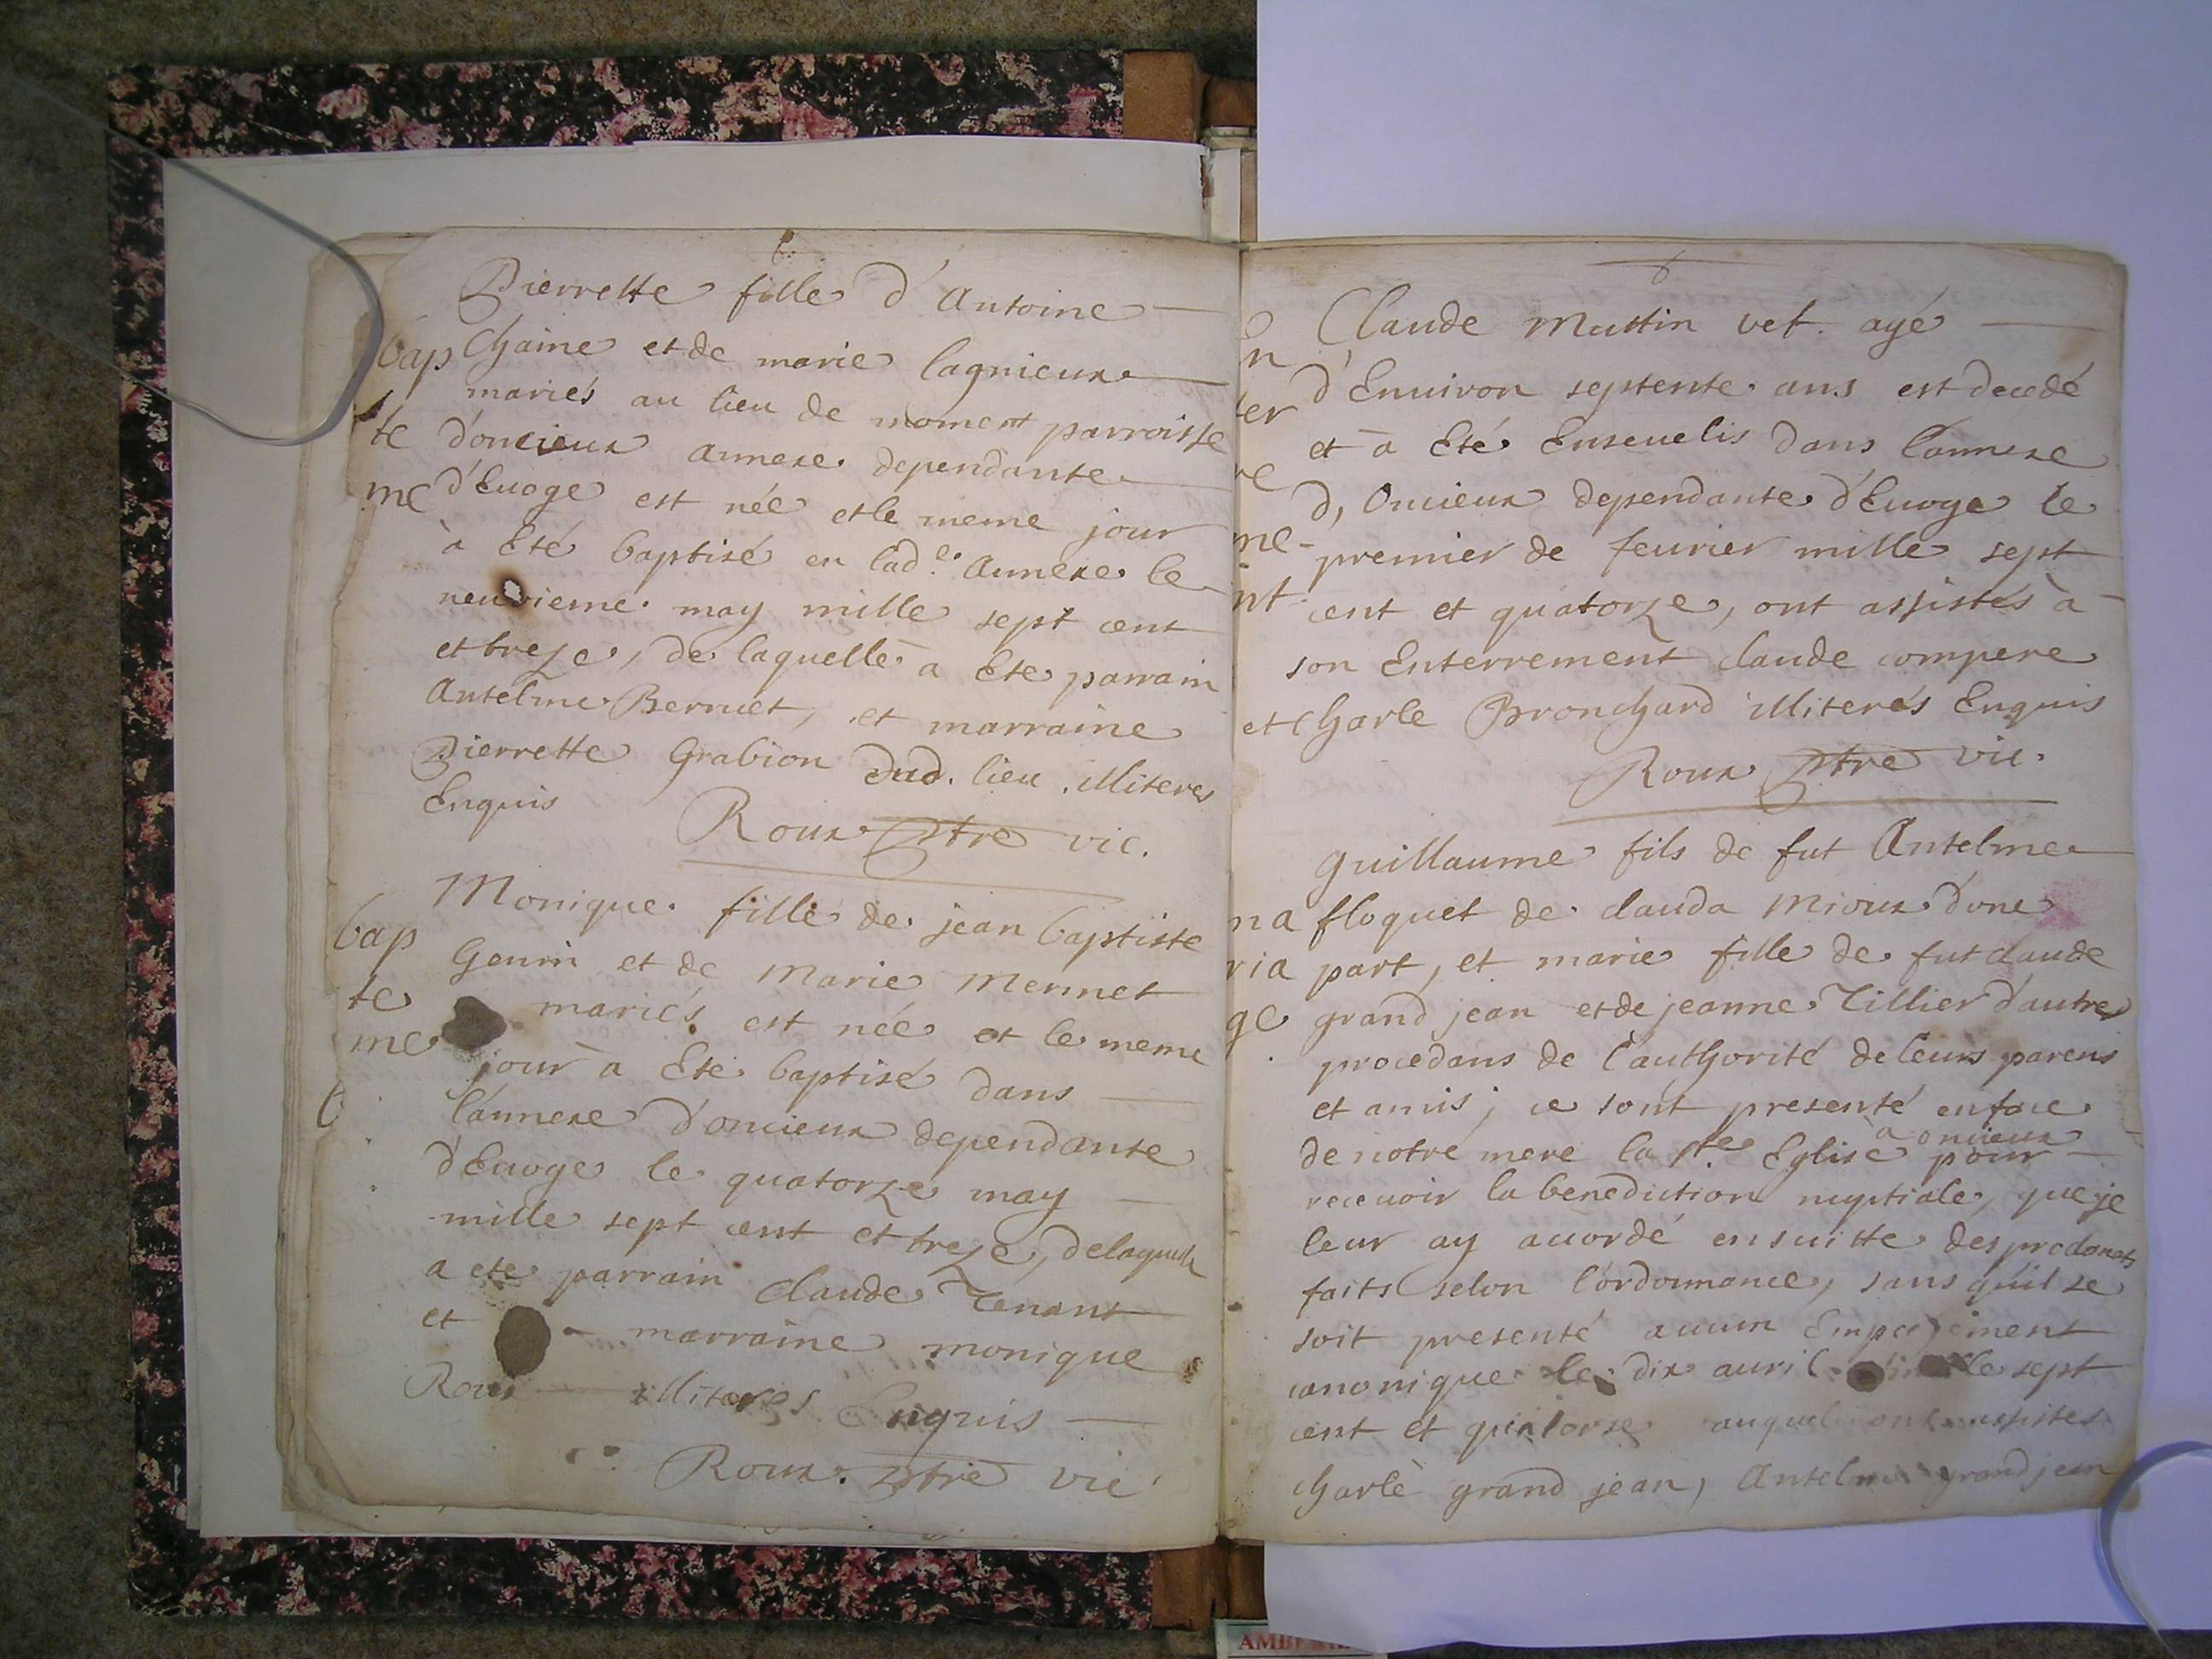 Pierrette fille d'Antoine
bap Chaine et de marie lagnieux
mariés au lieu de moment parroisse
te d'oncieux annexe dependante
me d'Euoge est née et le meme jour
à Eté baptisé en lad.e annexe le
neuvieme may mille sept cent
et treze, de laquelle a Ete parrain
Antelme Bernet, et marraine
Pierrette Grabion dud. lieu illiteres
Enquis
Roux ptre vic.
Monique fille de jean baptiste
bap Genin et de Marie Mermet
te mariés est née et le meme
me jour a Eté baptisé dans
l'annexe d'oncieux dependante
d'Euoge le quatorze may
mille sept cent et treze, delaquelle
a ete parrain claude Tenant
et marraine monique
Roux illiteres Enquis
Roux ptre vic
Claude Muttin vef. agé
En d'Enuiron septente ans est decedé
ter et a Eté Enseuelis dans l'annexe
re d, Oncieux dependante d'Euoge le
me- premier de feurier mille sept
nt cent et quatorze, ont assistés à
son Enterrement claude compere
et Charle Bronchard illiterés Enquis
Roux ptre vic.
Guillaume fils de fut Antelme
ma floquet de clauda Mioux d'one
ria part, et marie fille de fut claude
ge grand jean et de jeanne Tillier d'autre
procedans de l'authorité de leurs parens
et amis; ce sont presenté enface
de notre mere la Ste Eglise a oncieux pour
receuoir la benediction nuptiale, que je
leur ay acordé ensuitte des proclamats
faits selon l'ordonnance, sans qu'il se
soit presenté aucun Empechement
canonique le dix auril mille sept
cent et quatorze auquel ont assistes
charle grand jean, Antelme grand jean